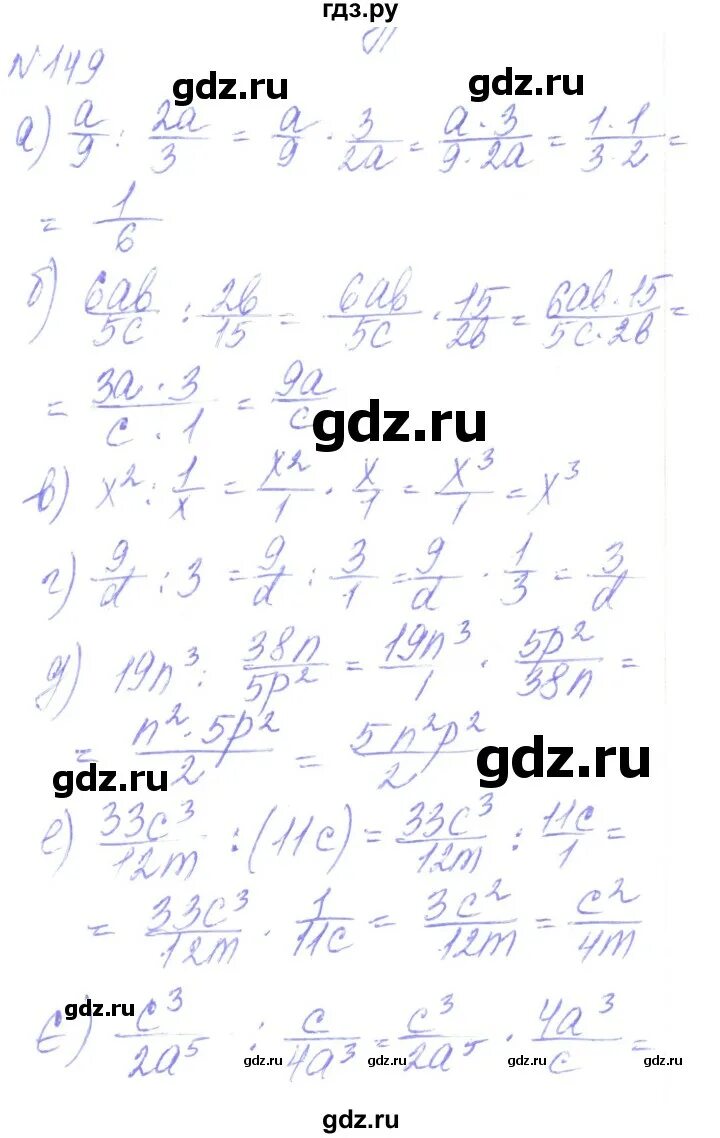 гдз.ру
№149
gdz.ru gdz.ru
а) a/9 : 2a/3 = a/9 · 3/2a = a·3/9·2a = 1·1/3·2 =
= 1/6
б) 6ab/5c : 2b/15 = 6ab/5c · 15/2b = 6ab·15/5c·2b =
= 3a·3/c·1 = 9a/c
gdz.ru
в) x² : 1/x = x²/1 · x/1 = x³/1 = x³
г) 9/d : 3 = 9/d : 3/1 = 9/d · 1/3 = 3/d
д) 19n³ : 38n/5p² = 19n³/1 · 5p²/38n =
= n²·5p²/2 = 5n²p²/2
gdz.ru gdz.ru
е) 33c³/12m : (11c) = 33c³/12m : 11c/1 =
= 33c³/12m · 1/11c = 3c²/12m = c²/4m
gdz.ru
є) c³/2a⁵ : c/4a³ = c³/2a⁵ · 4a³/c =
gdz.ru gdz.ru gdz.ru gdz.ru
gdz.ru